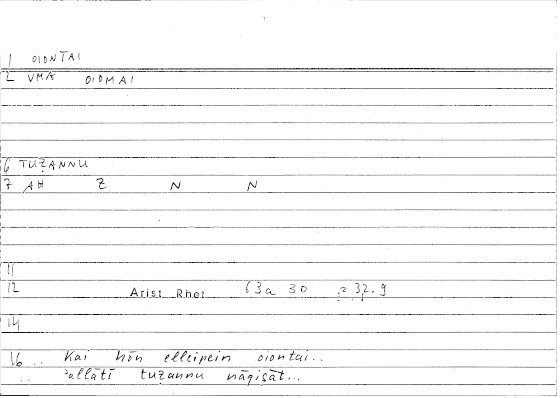 1 OIONTAI
2 VMA OIOMAI
6 TUZANNU
7 AH Z N N
11
12 Arist Rhet 63a 30 = 32.9
14
16 .. Kai hōn elleipein oiontai..
.. ʾallātī tuẓannu nāqiṣāt...